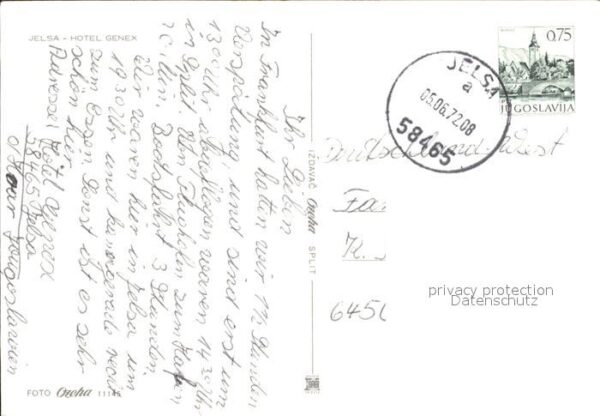 JELSA - HOTEL GENEX
Ihr Lieben
In Frankfurt hatten wir 1½ Stunden
Verspätung, und sind erst um
13 00 Uhr abgeflogen waren 14 30 Uhr
in Split. Von Flughafen zum Hafen
20 Min, Bootsfahrt 3 Stunden,
Wir waren hier in Jelsa um
19 30 Uhr und kamen gerade recht
zum Essen Sonst ist es sehr
schön hier
Adresse: Hotel Genex
58465 Jelsa
o. Hvar Jougoslavien
FOTO Oroha 11145
IZDAVAČ Oroha SPLIT
0,75
JUGOSLAVIJA
JELSA
a
05.06.72.08
58465
Deutschland-West
Fa
K.
645
privacy protection
Datenschutz